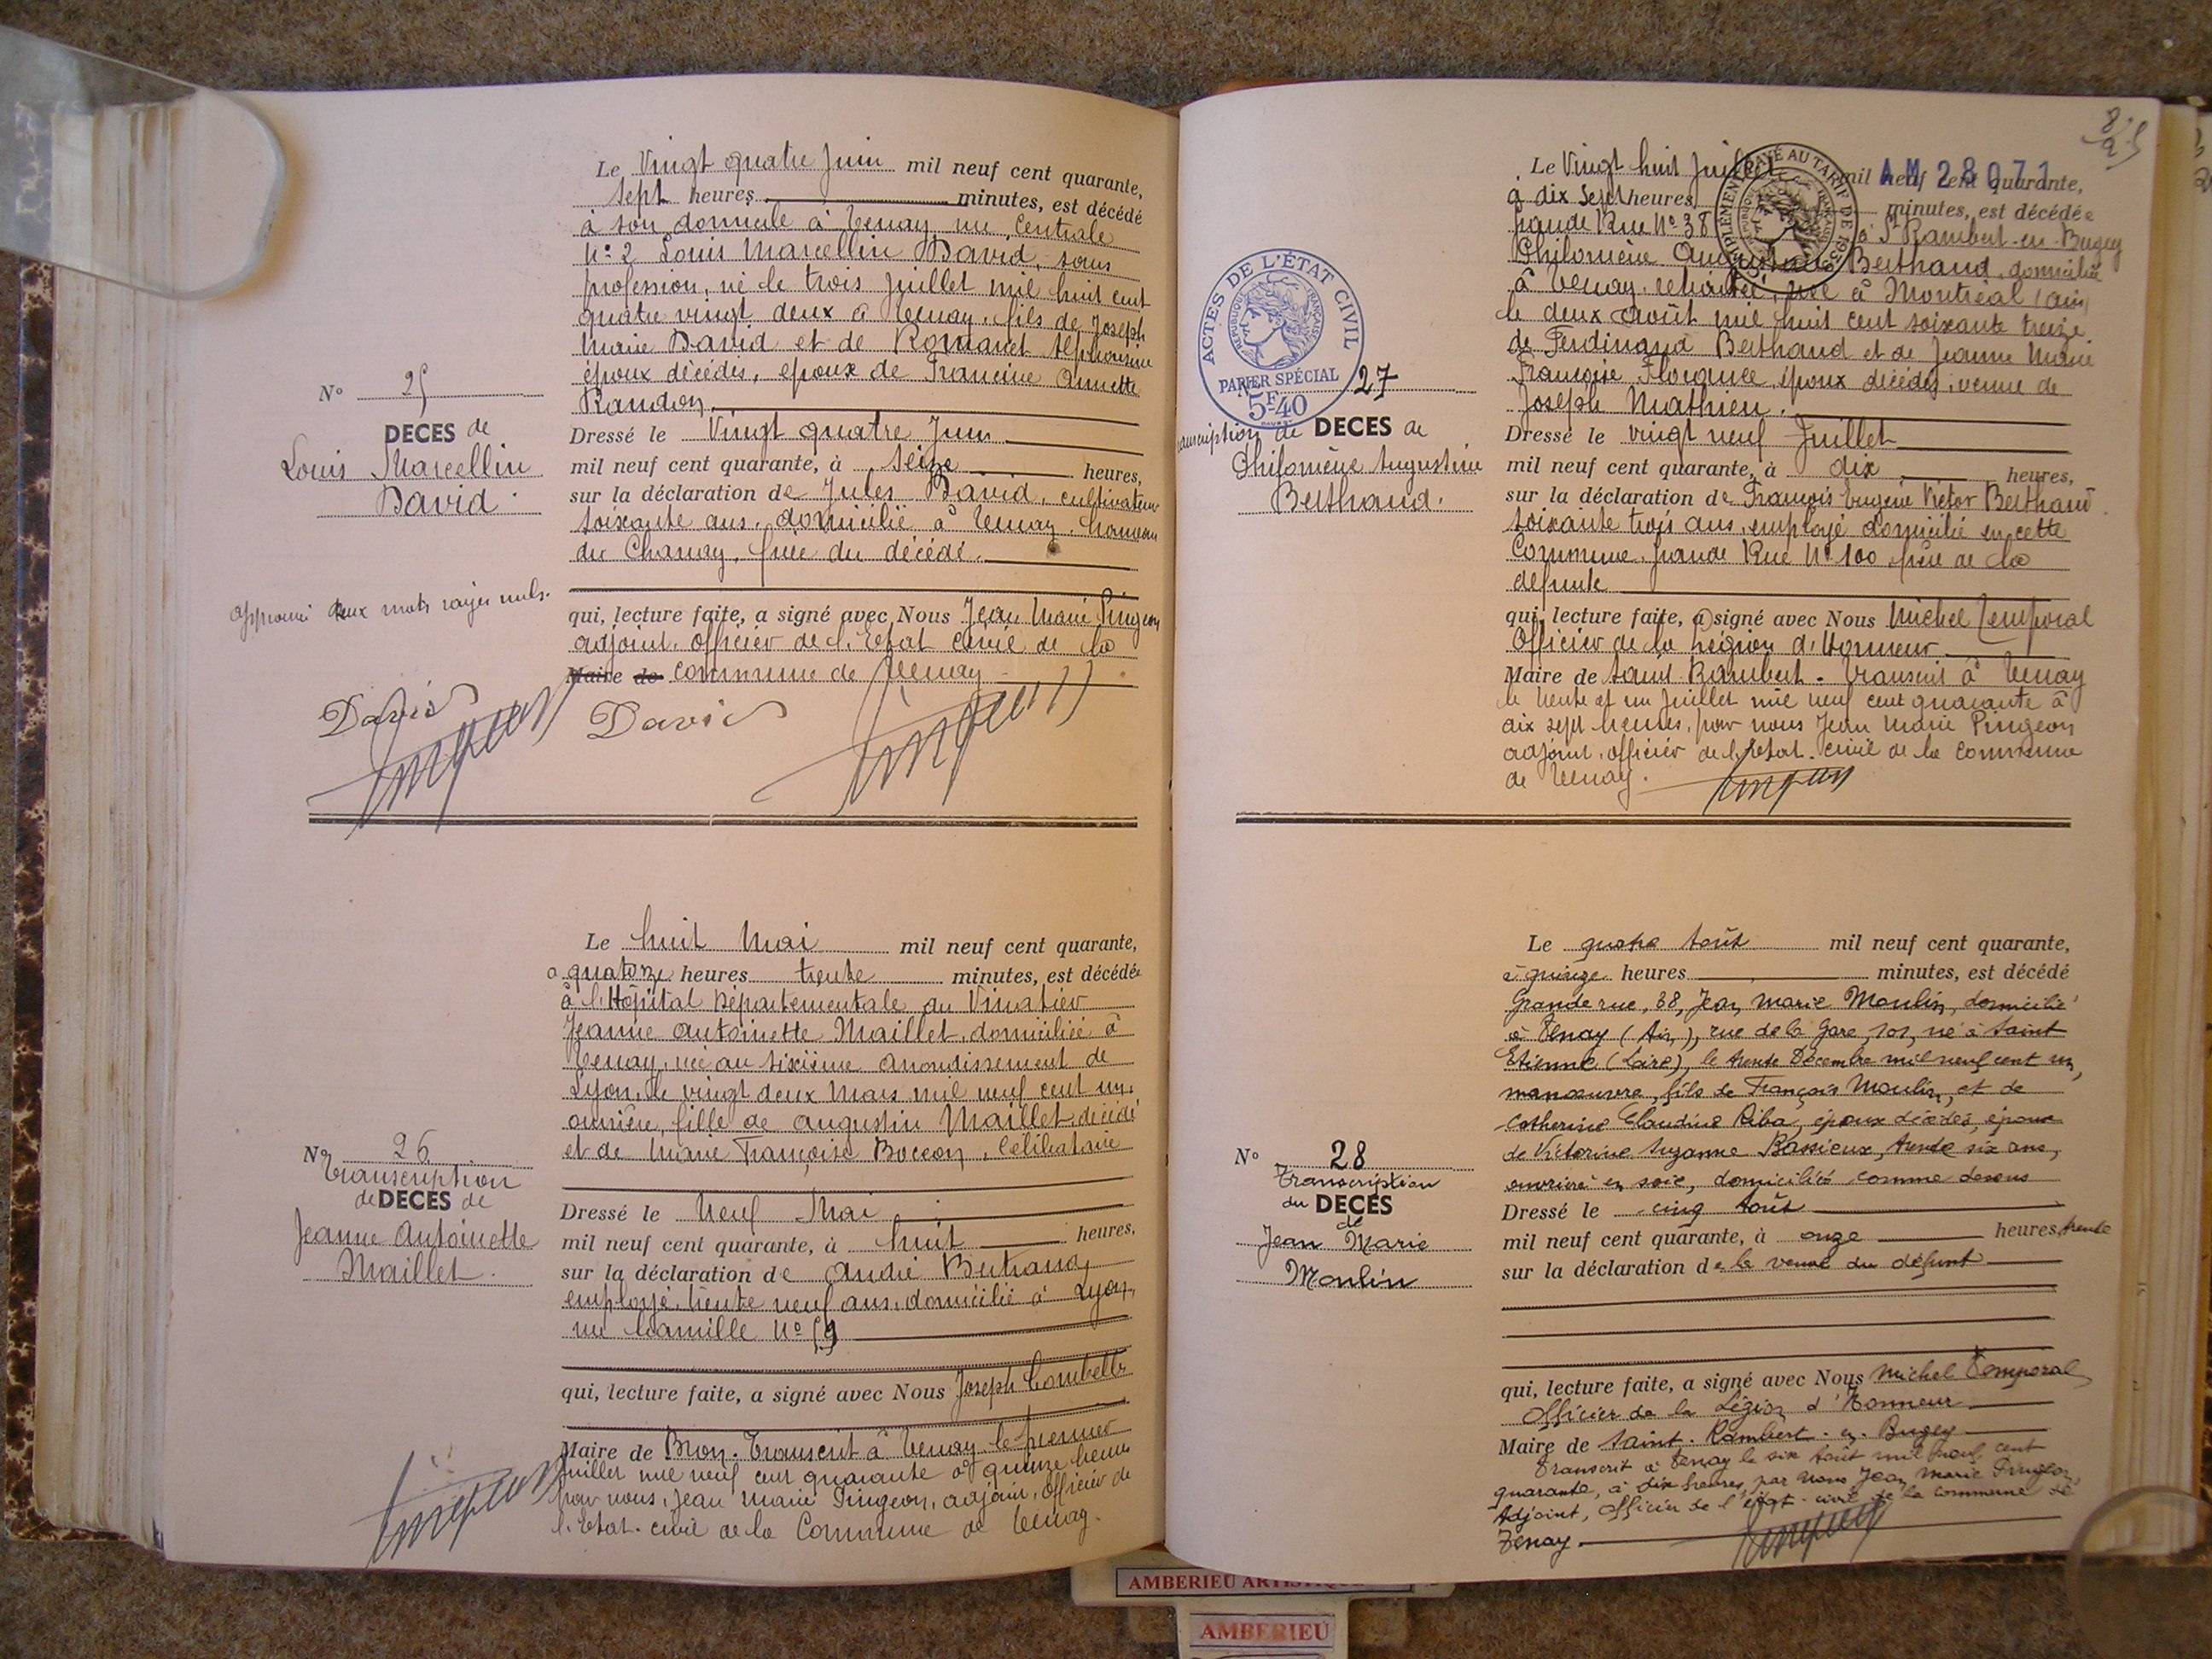 Le Vingt quatre Juin mil neuf cent quarante,
sept heures minutes, est décédé
à son domicile à Tenay, rue Centrale
N° 2 Louis Marcellin David, sans
profession, né le trois Juillet mil huit cent
quatre vingt deux à Tenay, fils de Joseph
Marie David et de Romanet Alphonsine
époux décédés, époux de Francine Annette
Randon
N° 25
DECES de
Louis Marcellin
David.
Dressé le Vingt quatre Juin
mil neuf cent quarante, à seize heures,
sur la déclaration de Jules David, cultivateur
soixante ans, domicilié à Tenay, hameau
du Chanay, frère du décédé.
Approuvé deux mots rayés nuls.
qui, lecture faite, a signé avec Nous Jean Marie Pingeon
adjoint, officier de l'Etat civil de la
Maire de commune de Tenay
David David
Le huit Mai mil neuf cent quarante,
à quatorze heures trente minutes, est décédée
à l'Hôpital Départementale du Vinatier
Jeanne Antoinette Maillet, domiciliée à
Tenay, née au sixième arrondissement de
Lyon, le vingt deux Mars mil neuf cent un,
ouvrière, fille de Augustin Maillet, décédé
et de Marie Françoise Boccon, Célibataire
N° 26
Transcription
de DECES de
Jeanne Antoinette
Maillet.
Dressé le Neuf Mai
mil neuf cent quarante, à huit heures,
sur la déclaration de André Bertrand
employé, trente neuf ans, domicilié à Lyon,
rue Camille N° 59
qui, lecture faite, a signé avec Nous Joseph
Maire de Bron. Transcrit à Tenay le premier
Juillet mil neuf cent quarante à quinze heures
par nous, Jean Marie Pingeon, adjoint, officier de
l'Etat-civil de la Commune de Tenay.
Le Vingt huit Juillet mil neuf cent quarante,
AM 28071
à dix sept heures minutes, est décédée
Grande Rue N° 38 à St Rambert-en-Bugey
Philomène Augustine Berthaud, domiciliée
à Tenay, retraitée, née à Montréal (Ain)
le deux Août mil huit cent soixante treize
de Ferdinand Berthaud et de Jeanne Marie
Françoise Florence, époux décédés, veuve de
Joseph Mathieu.
ACTES DE L'ÉTAT CIVIL
RÉPUBLIQUE FRANÇAISE
PAPIER SPÉCIAL
5F40
N° 27
Transcription de DECES de
Philomène Augustine
Berthaud.
Dressé le vingt neuf Juillet
mil neuf cent quarante, à dix heures,
sur la déclaration de François Eugène Victor Berthaud
soixante trois ans, employé domicilié en cette
Commune, Grande Rue N° 100 frère de la
défunte
qui, lecture faite, a signé avec Nous Michel Temporal
Officier de la Légion d'Honneur
Maire de Saint Rambert. Transcrit à Tenay
le trente et un Juillet mil neuf cent quarante à
dix sept heures, par nous Jean Marie Pingeon
adjoint, officier de l'Etat-civil de la Commune
de Tenay.
Le quatre Août mil neuf cent quarante,
à quinze heures minutes, est décédé
Grande rue, 38, Jean Marie Moulin, domicilié
à Tenay (Ain), rue de la Gare, 101, né à Saint
Etienne (Loire), le trente Décembre mil neuf cent un,
manœuvre, fils de François Moulin, et de
Catherine Claudine Riba, époux décédés, époux
de Victorine Suzanne Bassieux, trente six ans,
ouvrière en soie, domiciliée comme dessus
N° 28
Transcription
du DECES
de
Jean Marie
Moulin
Dressé le cinq Août
mil neuf cent quarante, à onze heures, trente
sur la déclaration de la veuve du défunt
qui, lecture faite, a signé avec Nous Michel Temporal
Officier de la Légion d'Honneur
Maire de Saint-Rambert-en-Bugey
Transcrit à Tenay le six Août mil neuf cent
quarante, à dix heures, par Nous Jean Marie Pingeon,
Adjoint, officier de l'état-civil de la commune de
Tenay
AMBERIEU
AMBERIEU